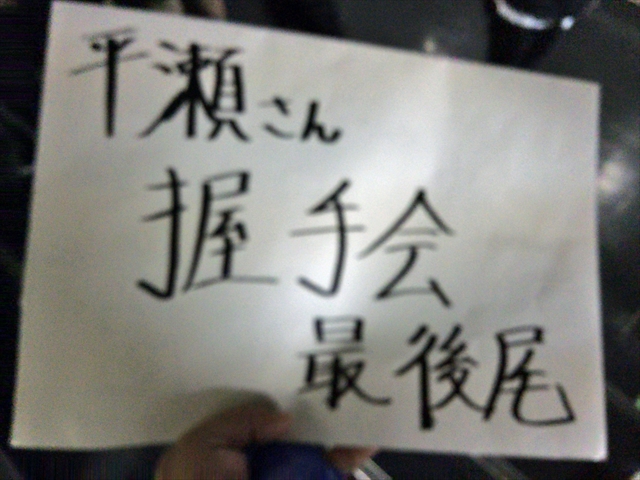 平瀬さん
握手会
最後尾